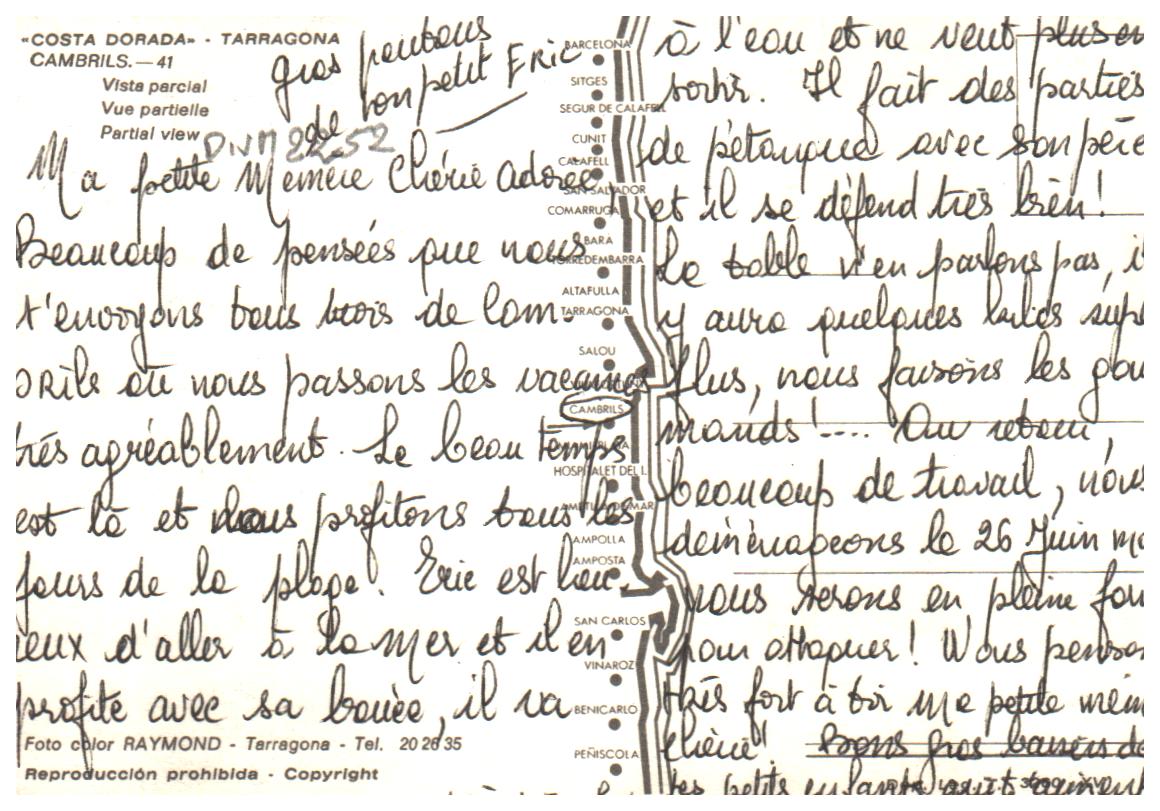 «COSTA DORADA» - TARRAGONA
CAMBRILS.—41
Vista parcial
Vue partielle
Partial view
gros poutous
de ton petit ERIC
Ma petite Mémère Chérie Adorée
Beaucoup de pensées que nous
t'envoyons tous trois de Cam-
brils où nous passons les vacances
très agréablement. Le beau temps
est là et nous profitons tous les
jours de la plage. Eric est heu-
reux d'aller à la mer et il en
profite avec sa bouée, il va
Foto color RAYMOND - Tarragona - Tel. 20 26 35
Reproducción prohibida - Copyright
BARCELONA
SITGES
SEGUR DE CALAFELL
CUNIT
CALAFELL
SAN SALVADOR
COMARRUGA
BARA
TORREDEMBARRA
ALTAFULLA
TARRAGONA
SALOU
CAMBRILS
HOSPITALET DEL I.
AMETLLA DE MAR
AMPOLLA
AMPOSTA
SAN CARLOS
VINAROZ
BENICARLO
PEÑISCOLA
à l'eau et ne veut plus en
sortir. Il fait des parties
de pétanque avec son père
et il se défend très bien!
La table n'en parlons pas, i
y aura quelques kilos supe
Plus, nous faisons les gou
mands!.... Au retour,
beaucoup de travail, nous
déménageons le 26 Juin ma
nous serons en pleine for
pour attaquer! Nous penson
très fort à toi ma petite mém
chérie! Bons gros baisers de
tes petits enfants qui t'aiment